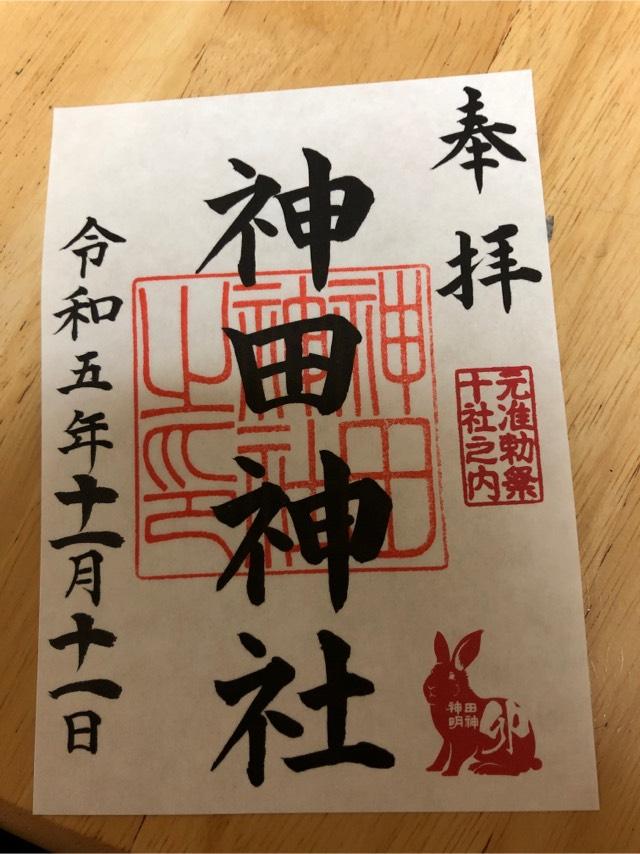 奉拝
元准勅祭
十社之内
神田神社
神田
神社
之印
令和五年十一月十一日
田神
神明
卯